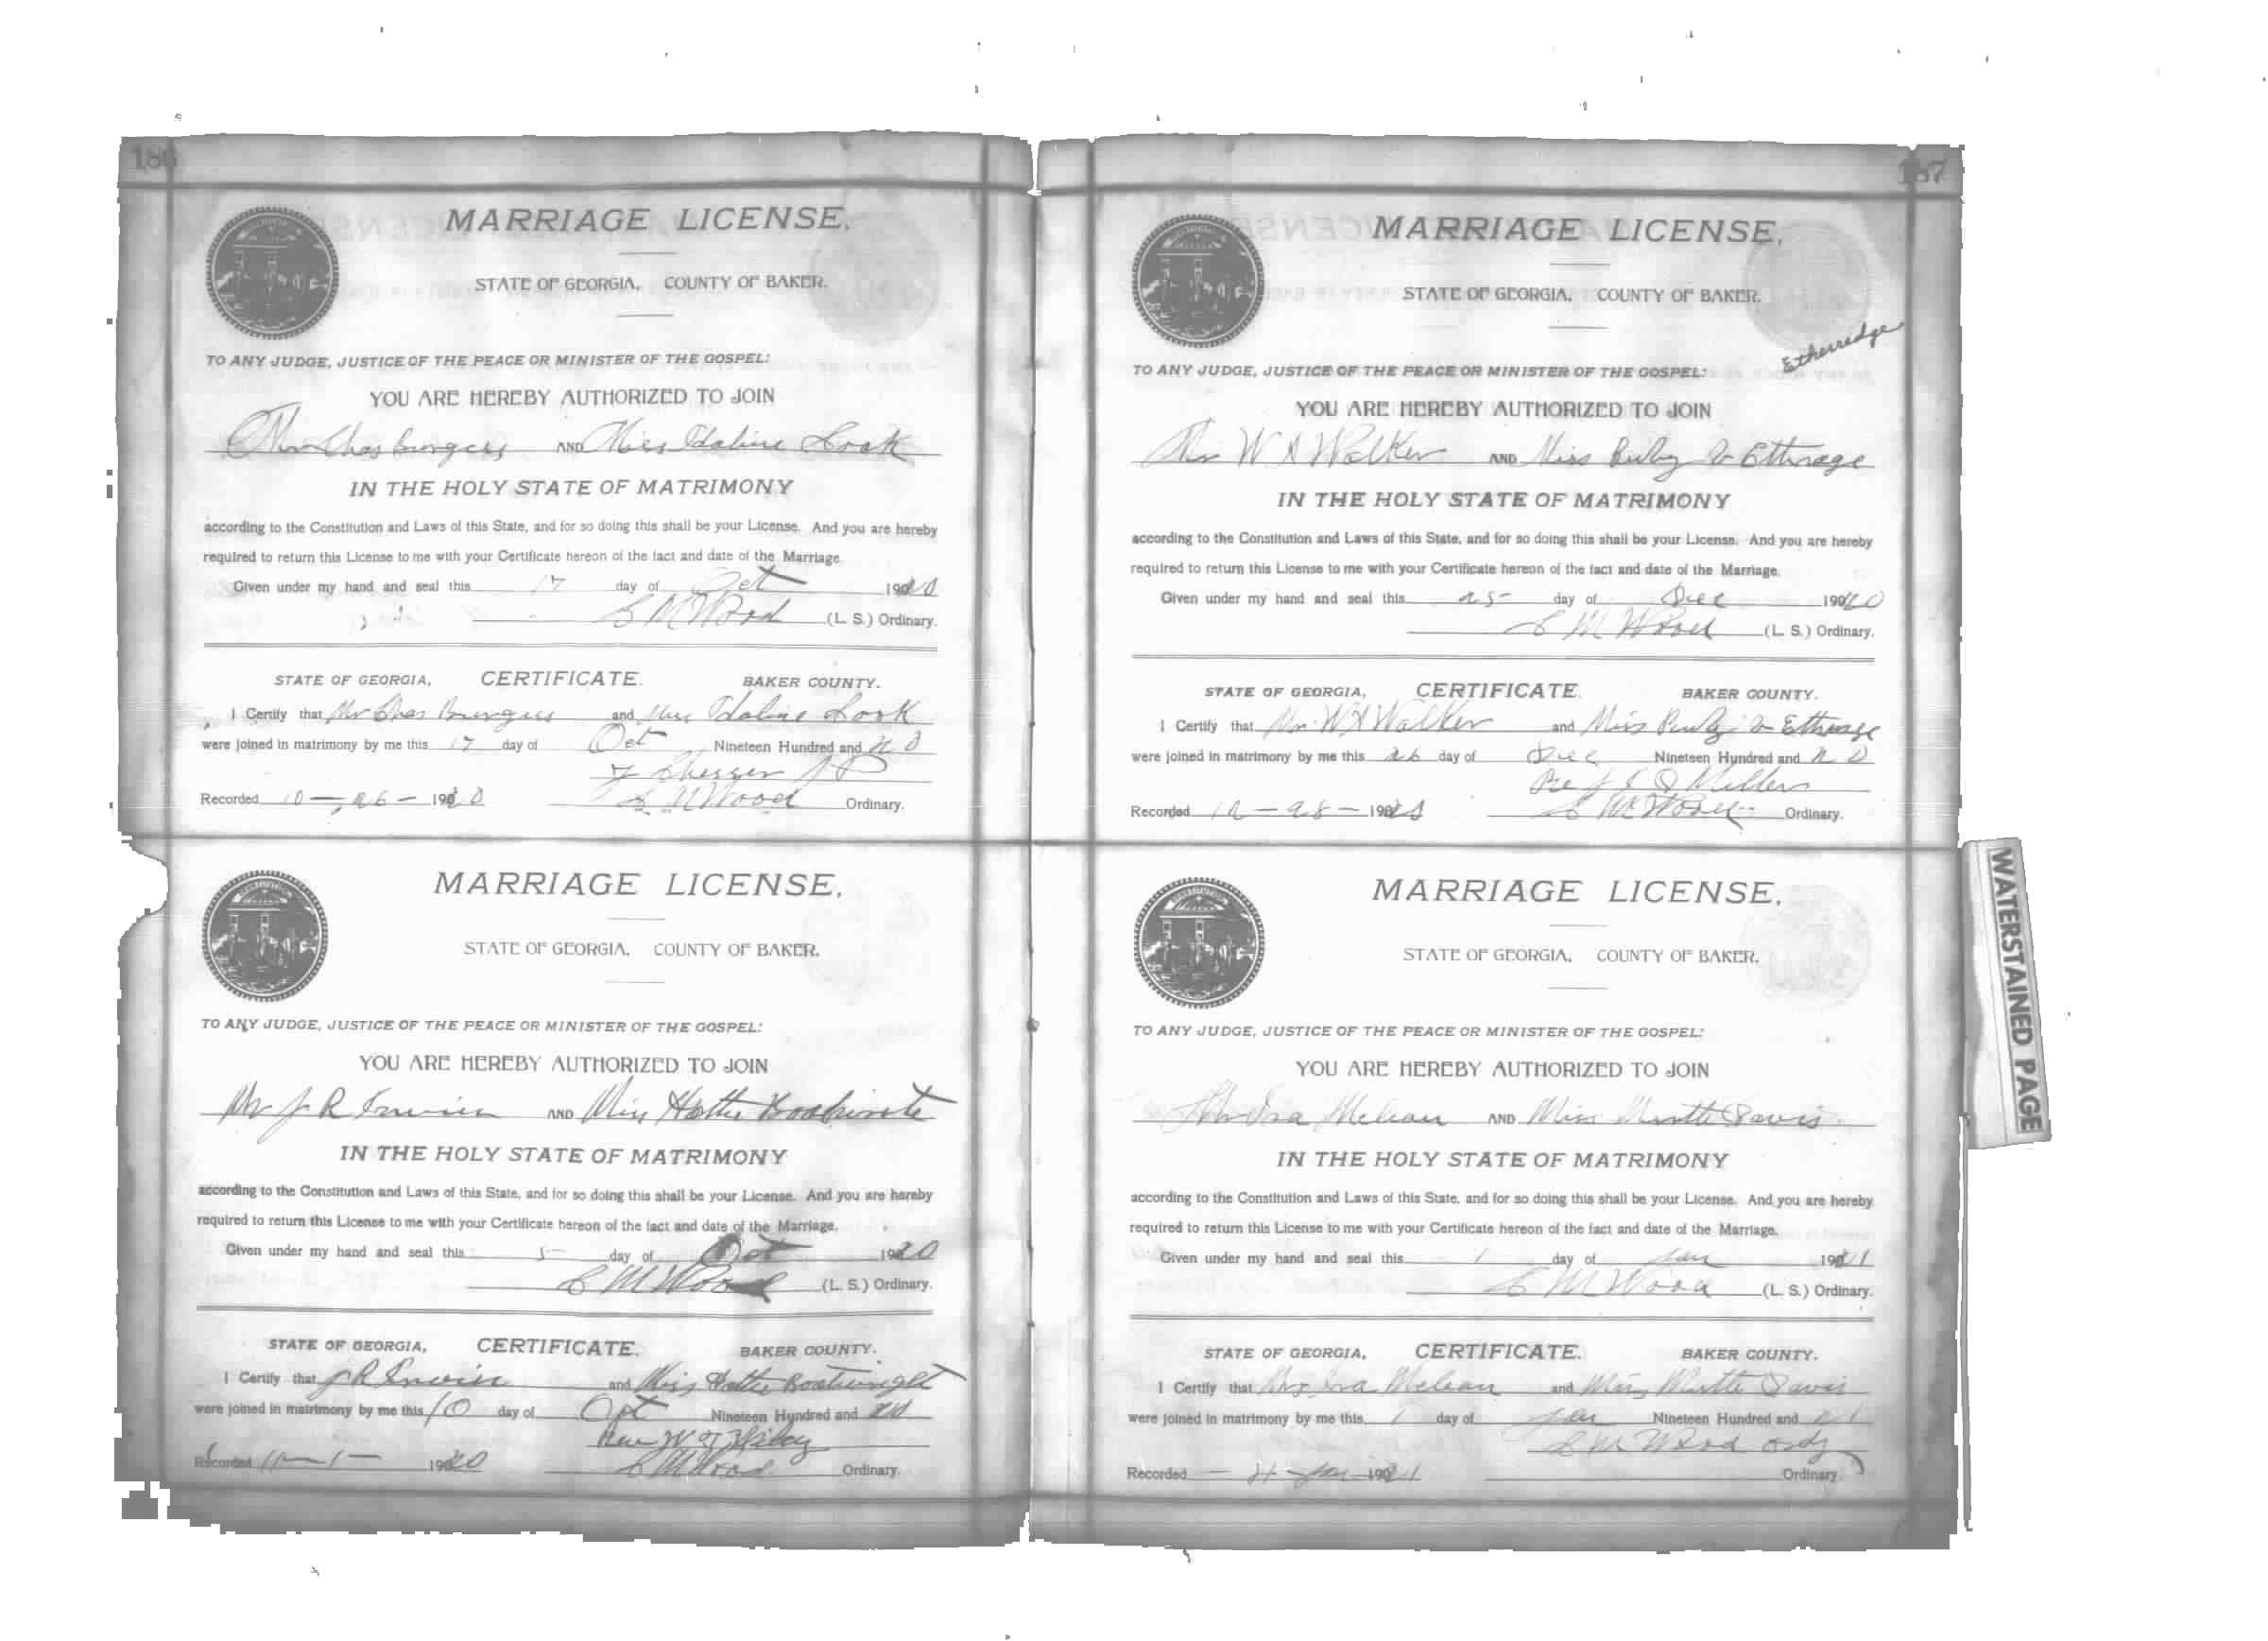 186
MARRIAGE LICENSE.
STATE OF GEORGIA, COUNTY OF BAKER.
TO ANY JUDGE, JUSTICE OF THE PEACE OR MINISTER OF THE GOSPEL:
YOU ARE HEREBY AUTHORIZED TO JOIN
Mr Chas Burgess AND Miss Idaline Look
IN THE HOLY STATE OF MATRIMONY
according to the Constitution and Laws of this State, and for so doing this shall be your License. And you are hereby
required to return this License to me with your Certificate hereon of the fact and date of the Marriage.
Given under my hand and seal this 17 day of Oct 1920
C M Wood (L. S.) Ordinary.
STATE OF GEORGIA, CERTIFICATE. BAKER COUNTY.
I Certify that Mr Chas Burgess and Miss Idaline Look
were joined in matrimony by me this 17 day of Oct Nineteen Hundred and 20
JP
Recorded 10-26-1920 C M Wood Ordinary.
MARRIAGE LICENSE.
STATE OF GEORGIA, COUNTY OF BAKER.
TO ANY JUDGE, JUSTICE OF THE PEACE OR MINISTER OF THE GOSPEL:
YOU ARE HEREBY AUTHORIZED TO JOIN
Mr J R Irwin AND Miss Hattie
IN THE HOLY STATE OF MATRIMONY
according to the Constitution and Laws of this State, and for so doing this shall be your License. And you are hereby
required to return this License to me with your Certificate hereon of the fact and date of the Marriage.
Given under my hand and seal this 5 day of Oct 1920
C M Wood (L. S.) Ordinary.
STATE OF GEORGIA, CERTIFICATE. BAKER COUNTY.
I Certify that J R Irwin and Miss Hattie Boatwright
were joined in matrimony by me this 10 day of Oct Nineteen Hundred and 20
Rev W
Recorded 11-1-1920 C M Wood Ordinary.
187
MARRIAGE LICENSE.
STATE OF GEORGIA, COUNTY OF BAKER.
Etherredge
TO ANY JUDGE, JUSTICE OF THE PEACE OR MINISTER OF THE GOSPEL:
YOU ARE HEREBY AUTHORIZED TO JOIN
Mr W A Walker AND Miss Ruby V Ethrage
IN THE HOLY STATE OF MATRIMONY
according to the Constitution and Laws of this State, and for so doing this shall be your License. And you are hereby
required to return this License to me with your Certificate hereon of the fact and date of the Marriage.
Given under my hand and seal this 25 day of Dec 1920
C M Wood (L. S.) Ordinary.
STATE OF GEORGIA, CERTIFICATE. BAKER COUNTY.
I Certify that Mr W A Walker and Miss Ruby V Ethrage
were joined in matrimony by me this 26 day of Dec Nineteen Hundred and 20
Rev Millers
Recorded 12-28-1920 C M Wood Ordinary.
MARRIAGE LICENSE.
STATE OF GEORGIA, COUNTY OF BAKER.
TO ANY JUDGE, JUSTICE OF THE PEACE OR MINISTER OF THE GOSPEL:
YOU ARE HEREBY AUTHORIZED TO JOIN
Mr Ira Mclean AND Miss Mirtle Davis
IN THE HOLY STATE OF MATRIMONY
according to the Constitution and Laws of this State, and for so doing this shall be your License. And you are hereby
required to return this License to me with your Certificate hereon of the fact and date of the Marriage.
Given under my hand and seal this 1 day of Jan 1921
C M Wood (L. S.) Ordinary.
STATE OF GEORGIA, CERTIFICATE. BAKER COUNTY.
I Certify that Mr Ira Mclean and Miss Mirtle Davis
were joined in matrimony by me this 1 day of Jan Nineteen Hundred and 21
C M Wood Ordy
Recorded Jan 1921 Ordinary.
WATERSTAINED PAGE